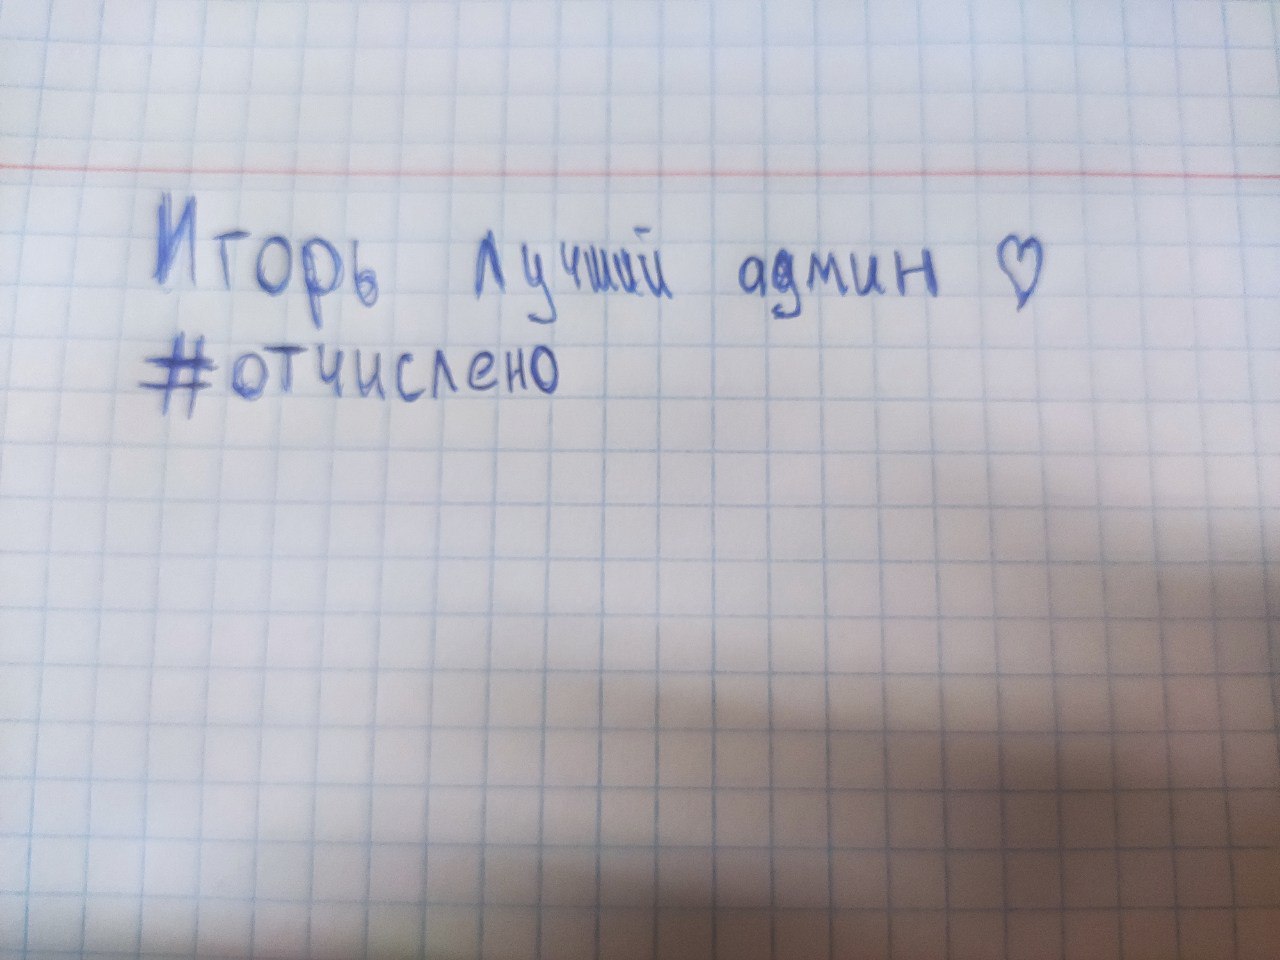 Игорь лучший админ ♡
#отчислено